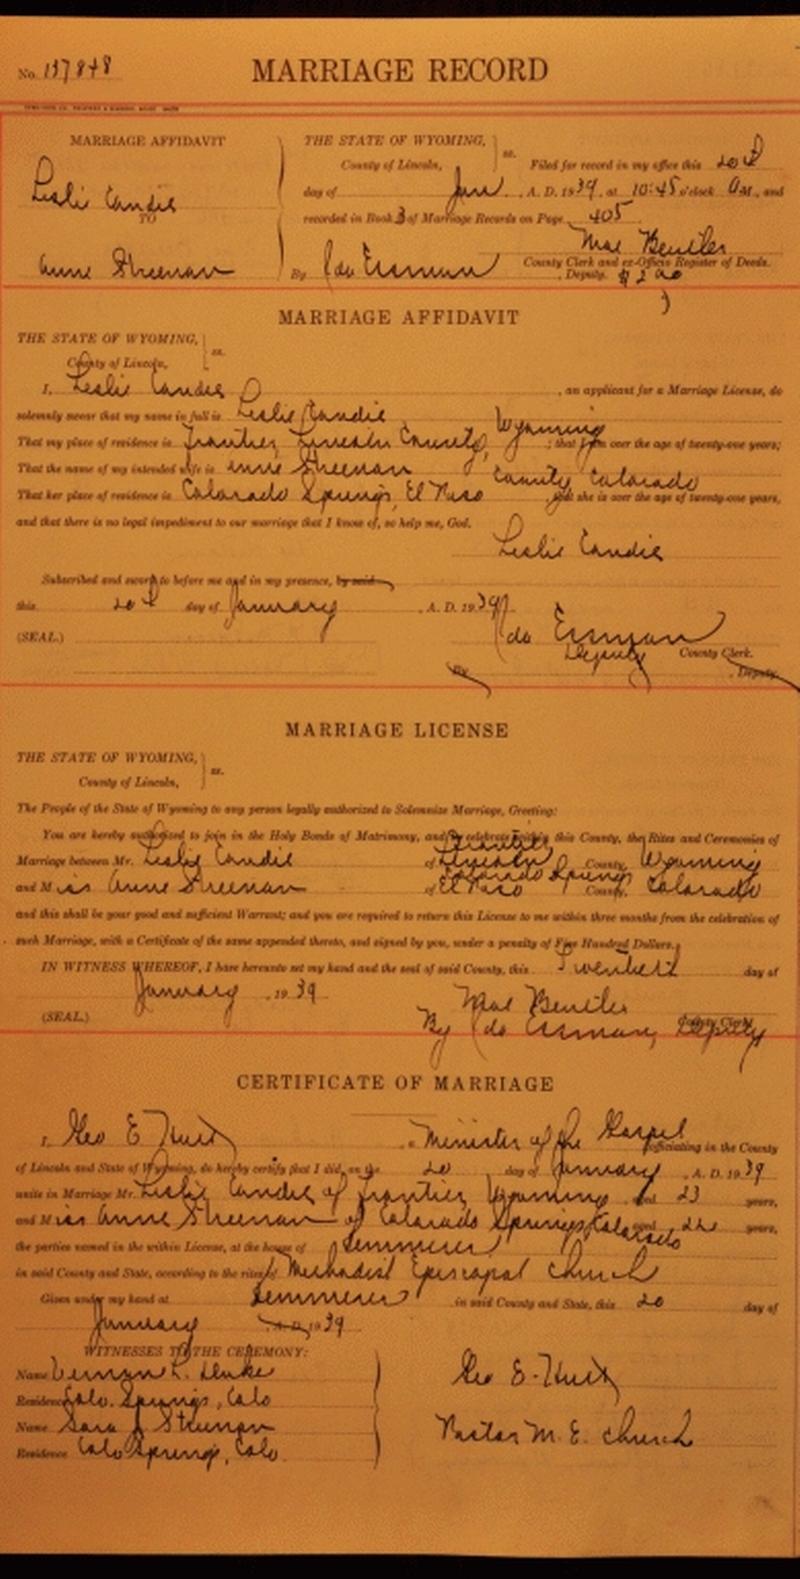 No. 137848 MARRIAGE RECORD
MARRIAGE AFFIDAVIT
Leslie Candie
TO
Anne Sheenan
THE STATE OF WYOMING,
County of Lincoln, ss. Filed for record in my office this 20th
day of Jan. A. D. 1939, at 10:45 o'clock A M., and
recorded in Book 3 of Marriage Records on Page 405
Mae Beutler
County Clerk and ex-Officio Register of Deeds.
By Ida Eisman, Deputy. $2.00
MARRIAGE AFFIDAVIT
THE STATE OF WYOMING,
County of Lincoln, ss.
I, Leslie Candie, an applicant for a Marriage License, do
solemnly swear that my name in full is Leslie Candie
That my place of residence is Frontier, Lincoln County, Wyoming; that I am over the age of twenty-one years;
That the name of my intended wife is Anne Sheenan
That her place of residence is Colorado Springs, El Paso County, Colorado, that she is over the age of twenty-one years,
and that there is no legal impediment to our marriage that I know of, so help me, God.
Leslie Candie
Subscribed and sworn to before me and in my presence, by said
this 20th day of January, A. D. 1939
(SEAL.) Ida Eisman
Deputy County Clerk.
By , Deputy
MARRIAGE LICENSE
THE STATE OF WYOMING,
County of Lincoln, ss.
The People of the State of Wyoming to any person legally authorized to Solemnize Marriage, Greeting:
You are hereby authorized to join in the Holy Bonds of Matrimony, and to celebrate within this County, the Rites and Ceremonies of
Marriage between Mr. Leslie Candie of Frontier Lincoln County, Wyoming
and Miss Anne Sheenan of Colorado Springs El Paso County, Colorado
and this shall be your good and sufficient Warrant; and you are required to return this License to me within three months from the celebration of
such Marriage, with a Certificate of the same appended thereto, and signed by you, under a penalty of Five Hundred Dollars.
IN WITNESS WHEREOF, I have hereunto set my hand and the seal of said County, this Twentieth day of
January, 1939
(SEAL.) Mae Beutler
County Clerk
By Ida Eisman, Deputy
CERTIFICATE OF MARRIAGE
I, Geo E Hurt, a Minister of the Gospel officiating in the County
of Lincoln and State of Wyoming, do hereby certify that I did, on the 20 day of January, A. D. 1939
unite in Marriage Mr. Leslie Candie of Frontier, Wyoming aged 23 years,
and Miss Anne Sheenan of Colorado Springs, Colorado aged 22 years,
the parties named in the within License, at the house of Kemmerer
in said County and State, according to the rites of Methodist Episcopal Church
Given under my hand at Kemmerer in said County and State, this 20 day of
January A. D. 1939
WITNESSES TO THE CEREMONY:
Name Vernon L.
Residence Colo. Springs, Colo
Name Sara J Sheenan
Residence Colo Springs, Colo.
Geo E. Hurt
Pastor M. E. Church